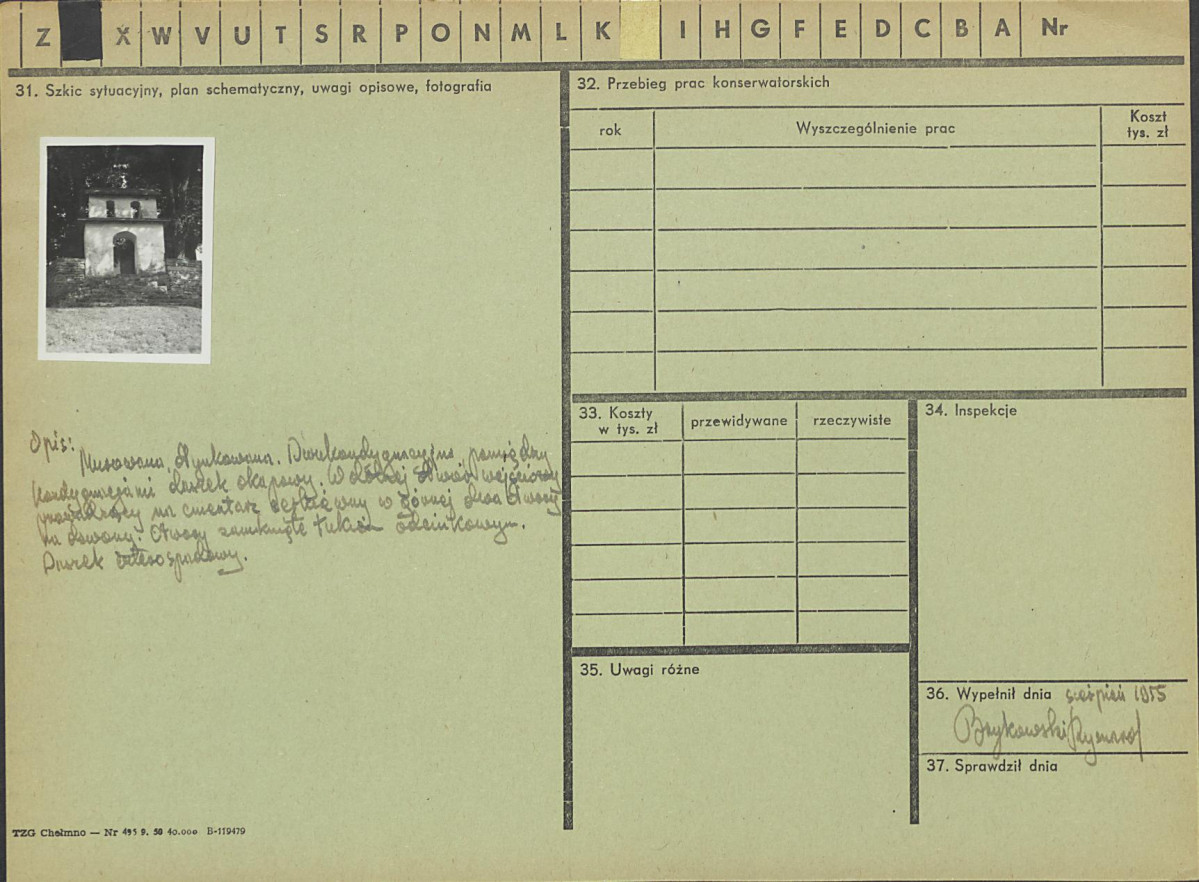 Z X W V U T S R P O N M L K I H G F E D C B A Nr
31. Szkic sytuacyjny, plan schematyczny, uwagi opisowe, fotografia
Opis:
Murowana, otynkowana. Dwukondygnacyjna, pomiędzy
kondygnacjami daszek okapowy. W dolnej otwór wejściowy
prowadzący na cmentarz w górnej dwa otwory
na dzwony. Otwory zamknięte łukiem odcinkowym.
Daszek czterospadowy.
TZG Chełmno — Nr 495 9. 50 40.000 B-119479
32. Przebieg prac konserwatorskich
rok Wyszczególnienie prac Koszt
tys. zł
33. Koszty
w tys. zł
przewidywane rzeczywiste
34. Inspekcje
35. Uwagi różne
36. Wypełnił dnia sierpień 1955
Brykowski Ryszard
37. Sprawdził dnia